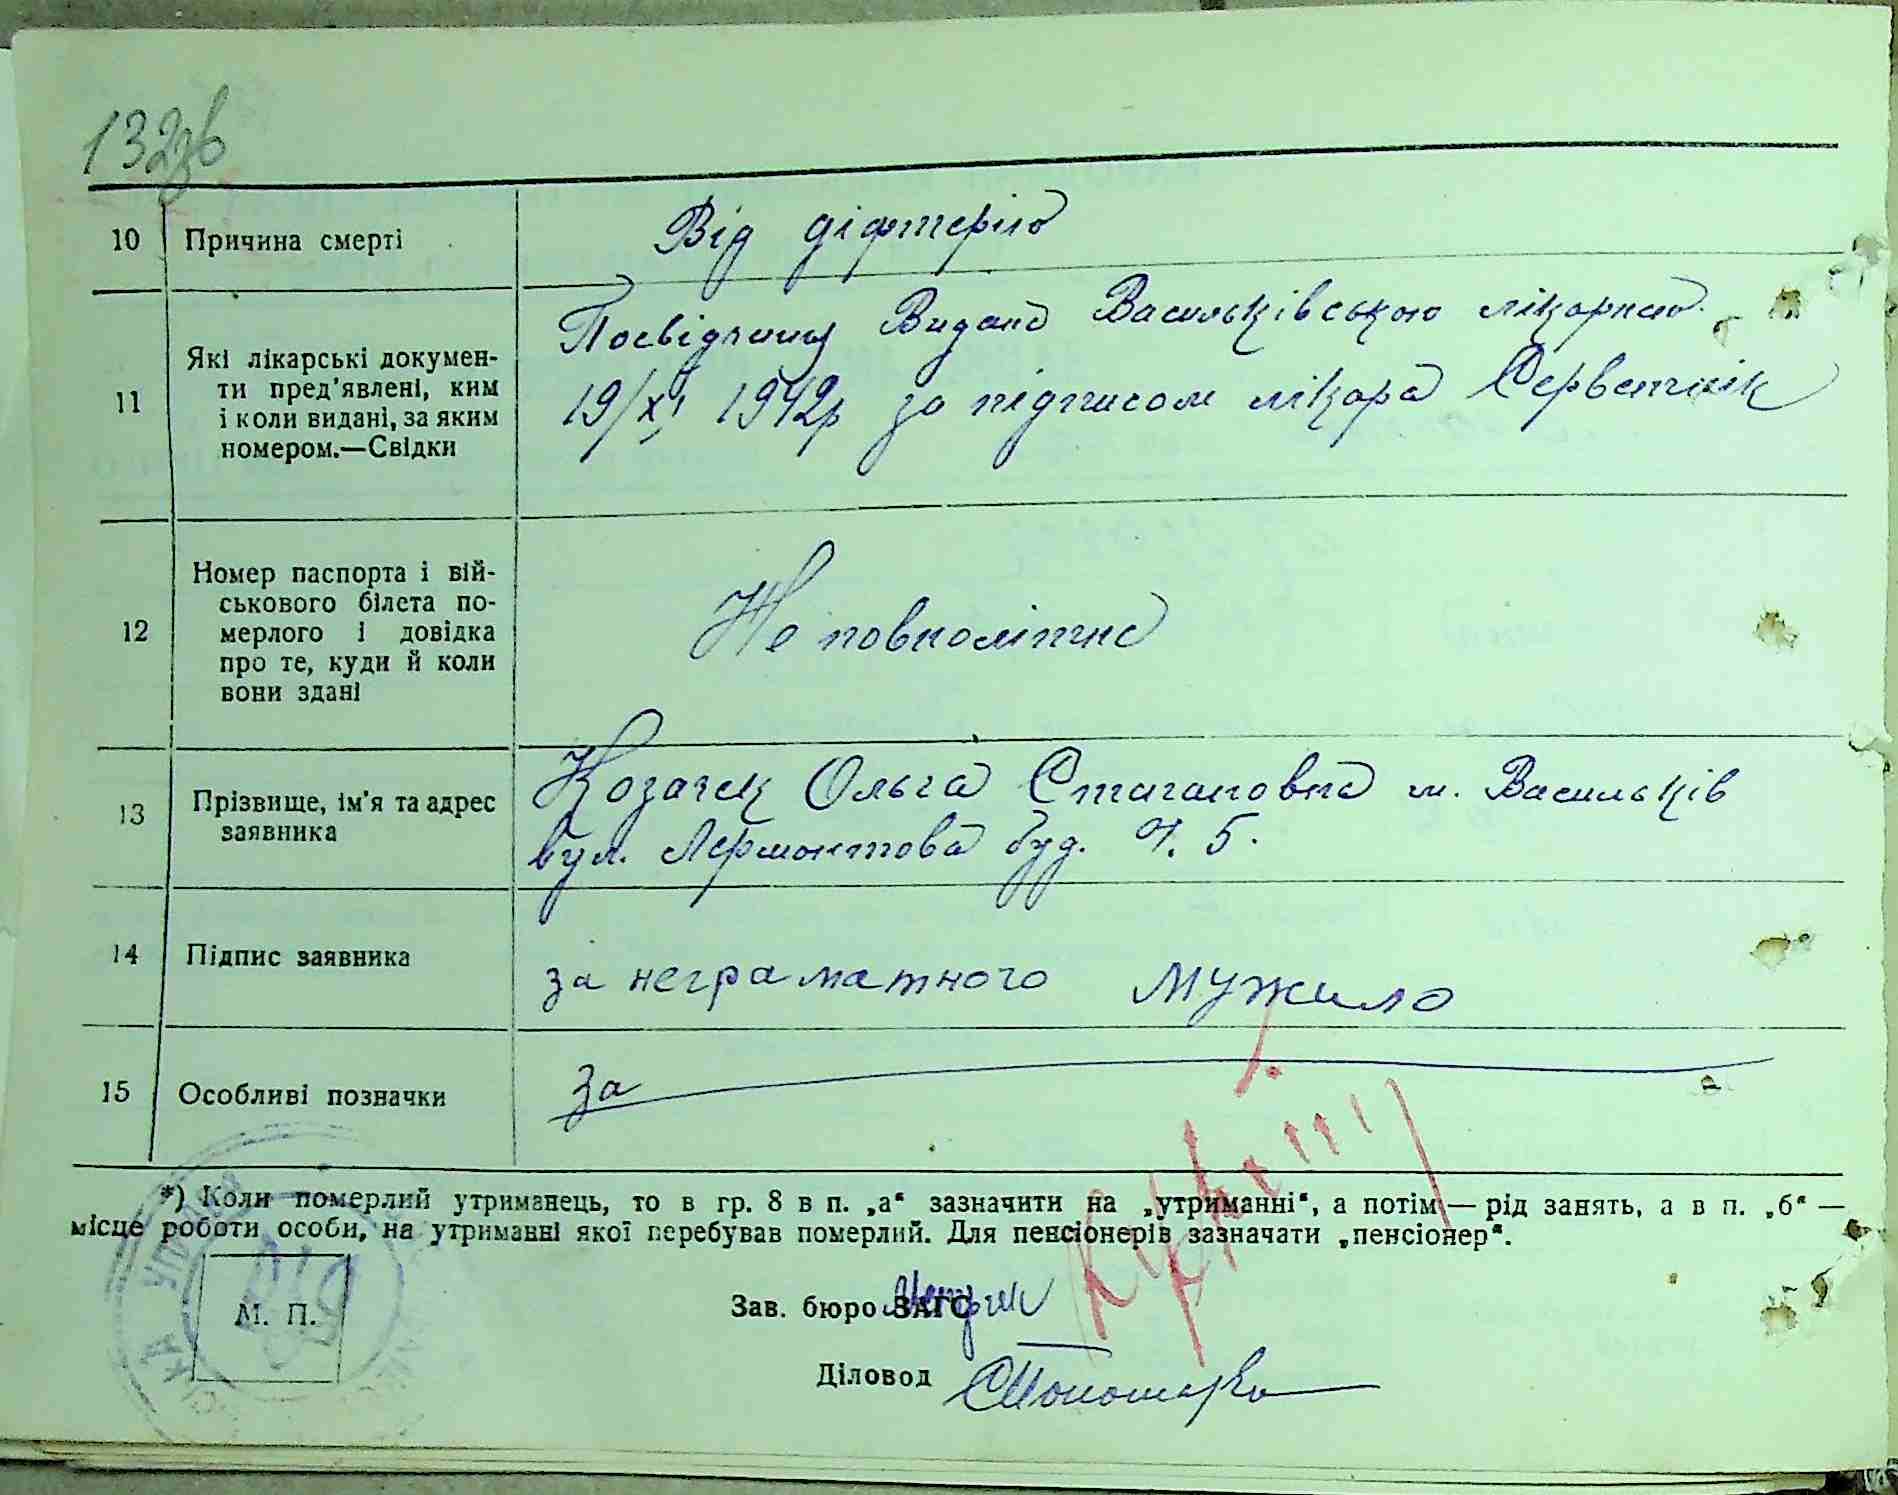 132зв
10 Причина смерті Від діфтерію
11 Які лікарські докумен-
ти пред'явлені, ким
і коли видані, за яким
номером.—Свідки
Посвідчиня Видано Васильківською лікарнею
19/XI 1942р за підписом лікара
12 Номер паспорта і вій-
ськового білета по-
мерлого і довідка
про те, куди й коли
вони здані
Не повнолітнє
13 Прізвище, ім'я та адрес
заявника
Козачек Ольга м. Васильків
вул. Лермонтова буд. Ч. 5.
14 Підпис заявника за неграматного Мужило
15 Особливі позначки За
*) Коли померлий утриманець, то в гр. 8 в п. „а“ зазначити на „утриманні“, а потім — рід занять, а в п. „б“ —
місце роботи особи, на утриманні якої перебував померлий. Для пенсіонерів зазначати „пенсіонер“.
М. П.
Зав. бюро ЗАГС
Діловод